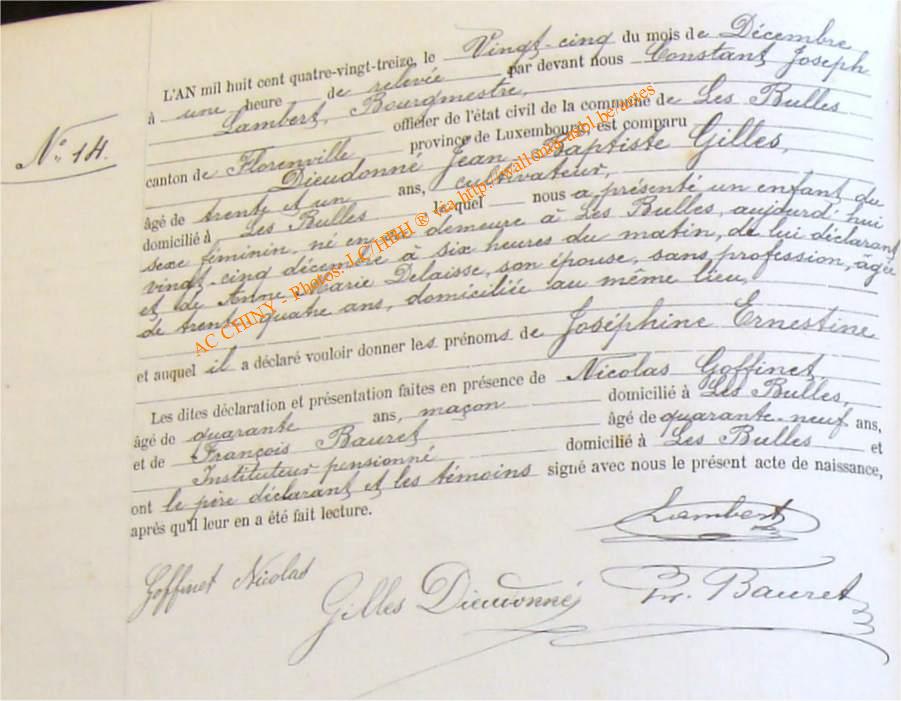 N° 14.
L'AN mil huit cent quatre-vingt-treize, le Vingt-cinq du mois de Décembre
à une heure de relevée par devant nous Constant Joseph
Lambert, Bourgmestre,
officier de l'état civil de la commune de Les Bulles
canton de Florenville province de Luxembourg, est comparu
Dieudonné Jean Baptiste Gilles,
âgé de trente et un ans, cultivateur,
domicilié à Les Bulles lequel nous a présenté un enfant du
sexe féminin, né en sa demeure à Les Bulles, aujourd'hui
vingt-cinq décembre à six heures du matin, de lui déclarant
et de Anne Marie Delaisse, son épouse, sans profession, âgée
de trente quatre ans, domiciliée au même lieu,
et auquel il a déclaré vouloir donner les prénoms de Joséphine Ernestine
Les dites déclaration et présentation faites en présence de Nicolas Goffinet
âgé de quarante ans, maçon domicilié à Les Bulles,
et de François Bauret âgé de quarante-neuf ans,
Instituteur pensionné domicilié à Les Bulles et
ont le père déclarant et les témoins signé avec nous le présent acte de naissance,
après qu'il leur en a été fait lecture.
Lambert
Goffinet Nicolas
Gilles Dieudonné
Fr. Bauret
AC CHINY - Photos: J.C HBH ® via http://wallonia-asbl.be/actes